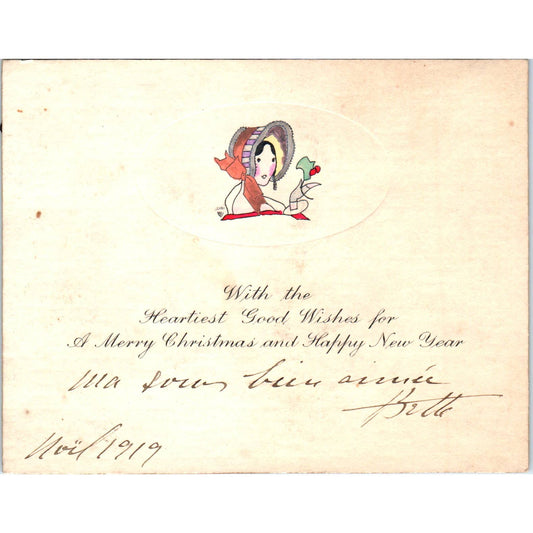 With the
Heartiest Good Wishes for
A Merry Christmas and Happy New Year
Ma soeur bien aimée
Bette
Noël 1919